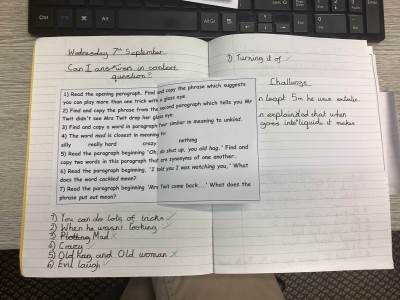 Wednesday 7th September
Can I answer in context
question?
1) Read the opening paragraph. Find and copy the phrase which suggests
you can play more than one trick with a glass eye.
2) Find and copy the phrase from the second paragraph which tells you Mr
Twit didn't see Mrs Twit drop her glass eye.
3) Find and copy a word in paragraph four similar in meaning to unkind.
4) The word mad is closest in meaning to
silly really hard crazy nothing
5) Read the paragraph beginning 'Oh, do shut up, you old hag.' Find and
copy two words in this paragraph that are synonyms of one another.
6) Read the paragraph beginning, 'I told you I was watching you,' What
does the word cackled mean?
7) Read the paragraph beginning 'Mrs Twit came back...' What does the
phrase put out mean?
1) You can do lots of tricks
2) When he wasnt looking
3) Plotting Mad
4) Crazy
5) Old Hag and Old woman
6) Evil laugh
7) Turning it of
Challenge
n leapt 5m he was extatic.
n explainded that when
goes into liquide it makes